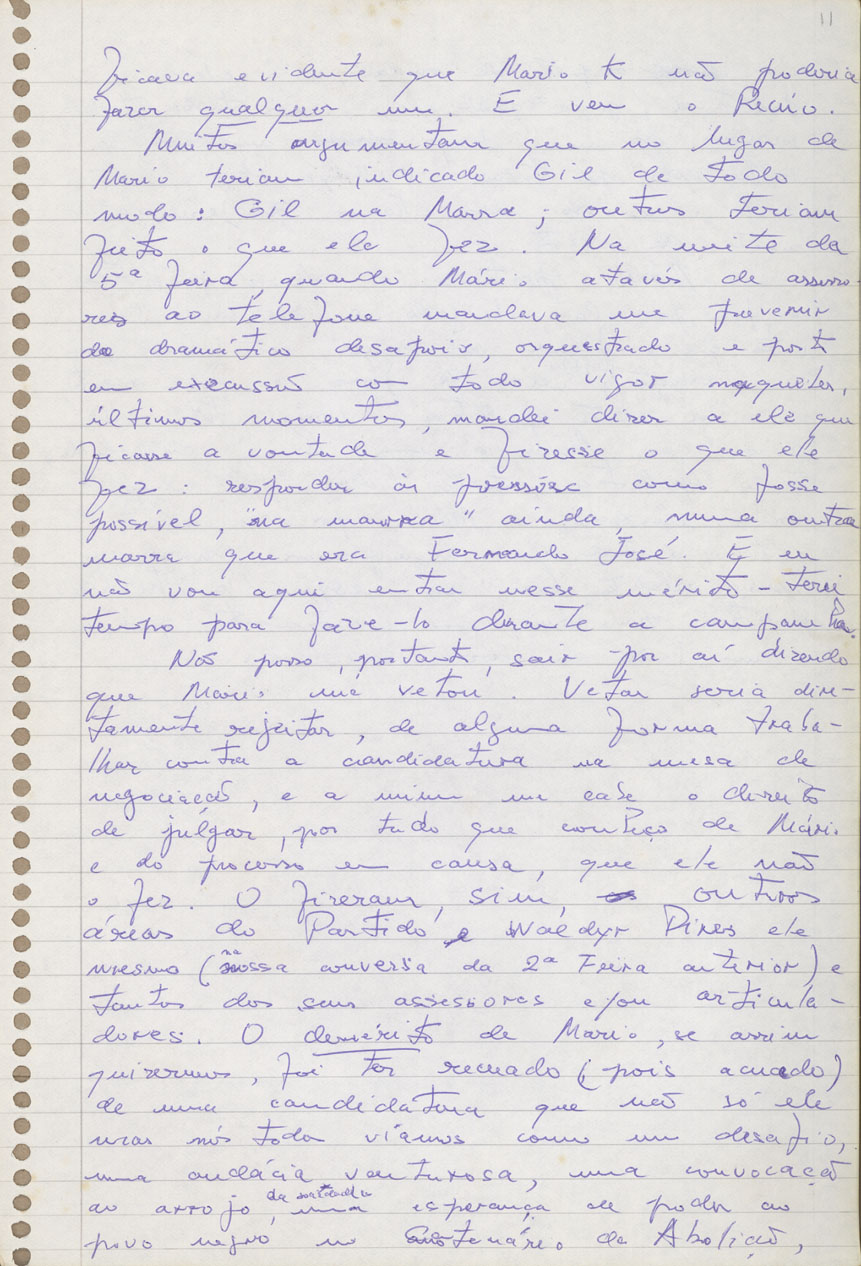 11
Ficava evidente que Mario K não poderia
fazer qualquer um. E vem o Recúo.
Muitos argumentam que no lugar de
Mario teriam indicado Gil de todo
modo: Gil na Marra; outros teriam
feito o que ele fez. Na noite da
5ª feira, quando Mário através de assesso-
res ao telefone mandava me prevenir
do dramático desapoio, orquestrado e posto
em execussão com todo vigor naqueles
últimos momentos, mandei dizer a ele que
ficasse a vontade e fizesse o que ele
fez: responder às pressões como fosse
possível, "na marra" ainda, numa outra
marra que era Fernando José. E eu
não vou aqui entrar nesse mérito - terei
tempo para faze-lo durante a campanha.
Não posso, portanto, sair por aí dizendo
que Mário me vetou. Vetar seria dire-
tamente rejeitar, de alguma forma traba-
lhar contra a candidatura na mesa de
negociação, e a mim me cabe o direito
de julgar, por tudo que conheço de Mário
e do processo em causa, que ele não
o fez. O fizeram, sim, outras
áreas do Partido, e Waldyr Pires ele
mesmo (na nossa conversa da 2ª Feira anterior) e
tantos dos seus assessores e/ou articula-
dores. O demérito de Mario, se assim
quizermos, foi ter recuado (pois acuado)
de uma candidatura que não só ele
mas nós todos víamos como um desafio,
uma audácia venturosa, uma convocação
ao arrojo, da esperança de poder ao
povo negro no Centenário da Abolição,